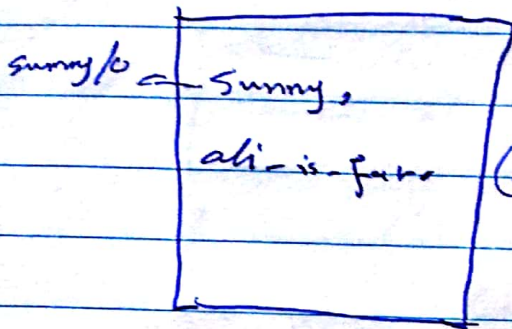 sunny/0 ← sunny,
ali-is-